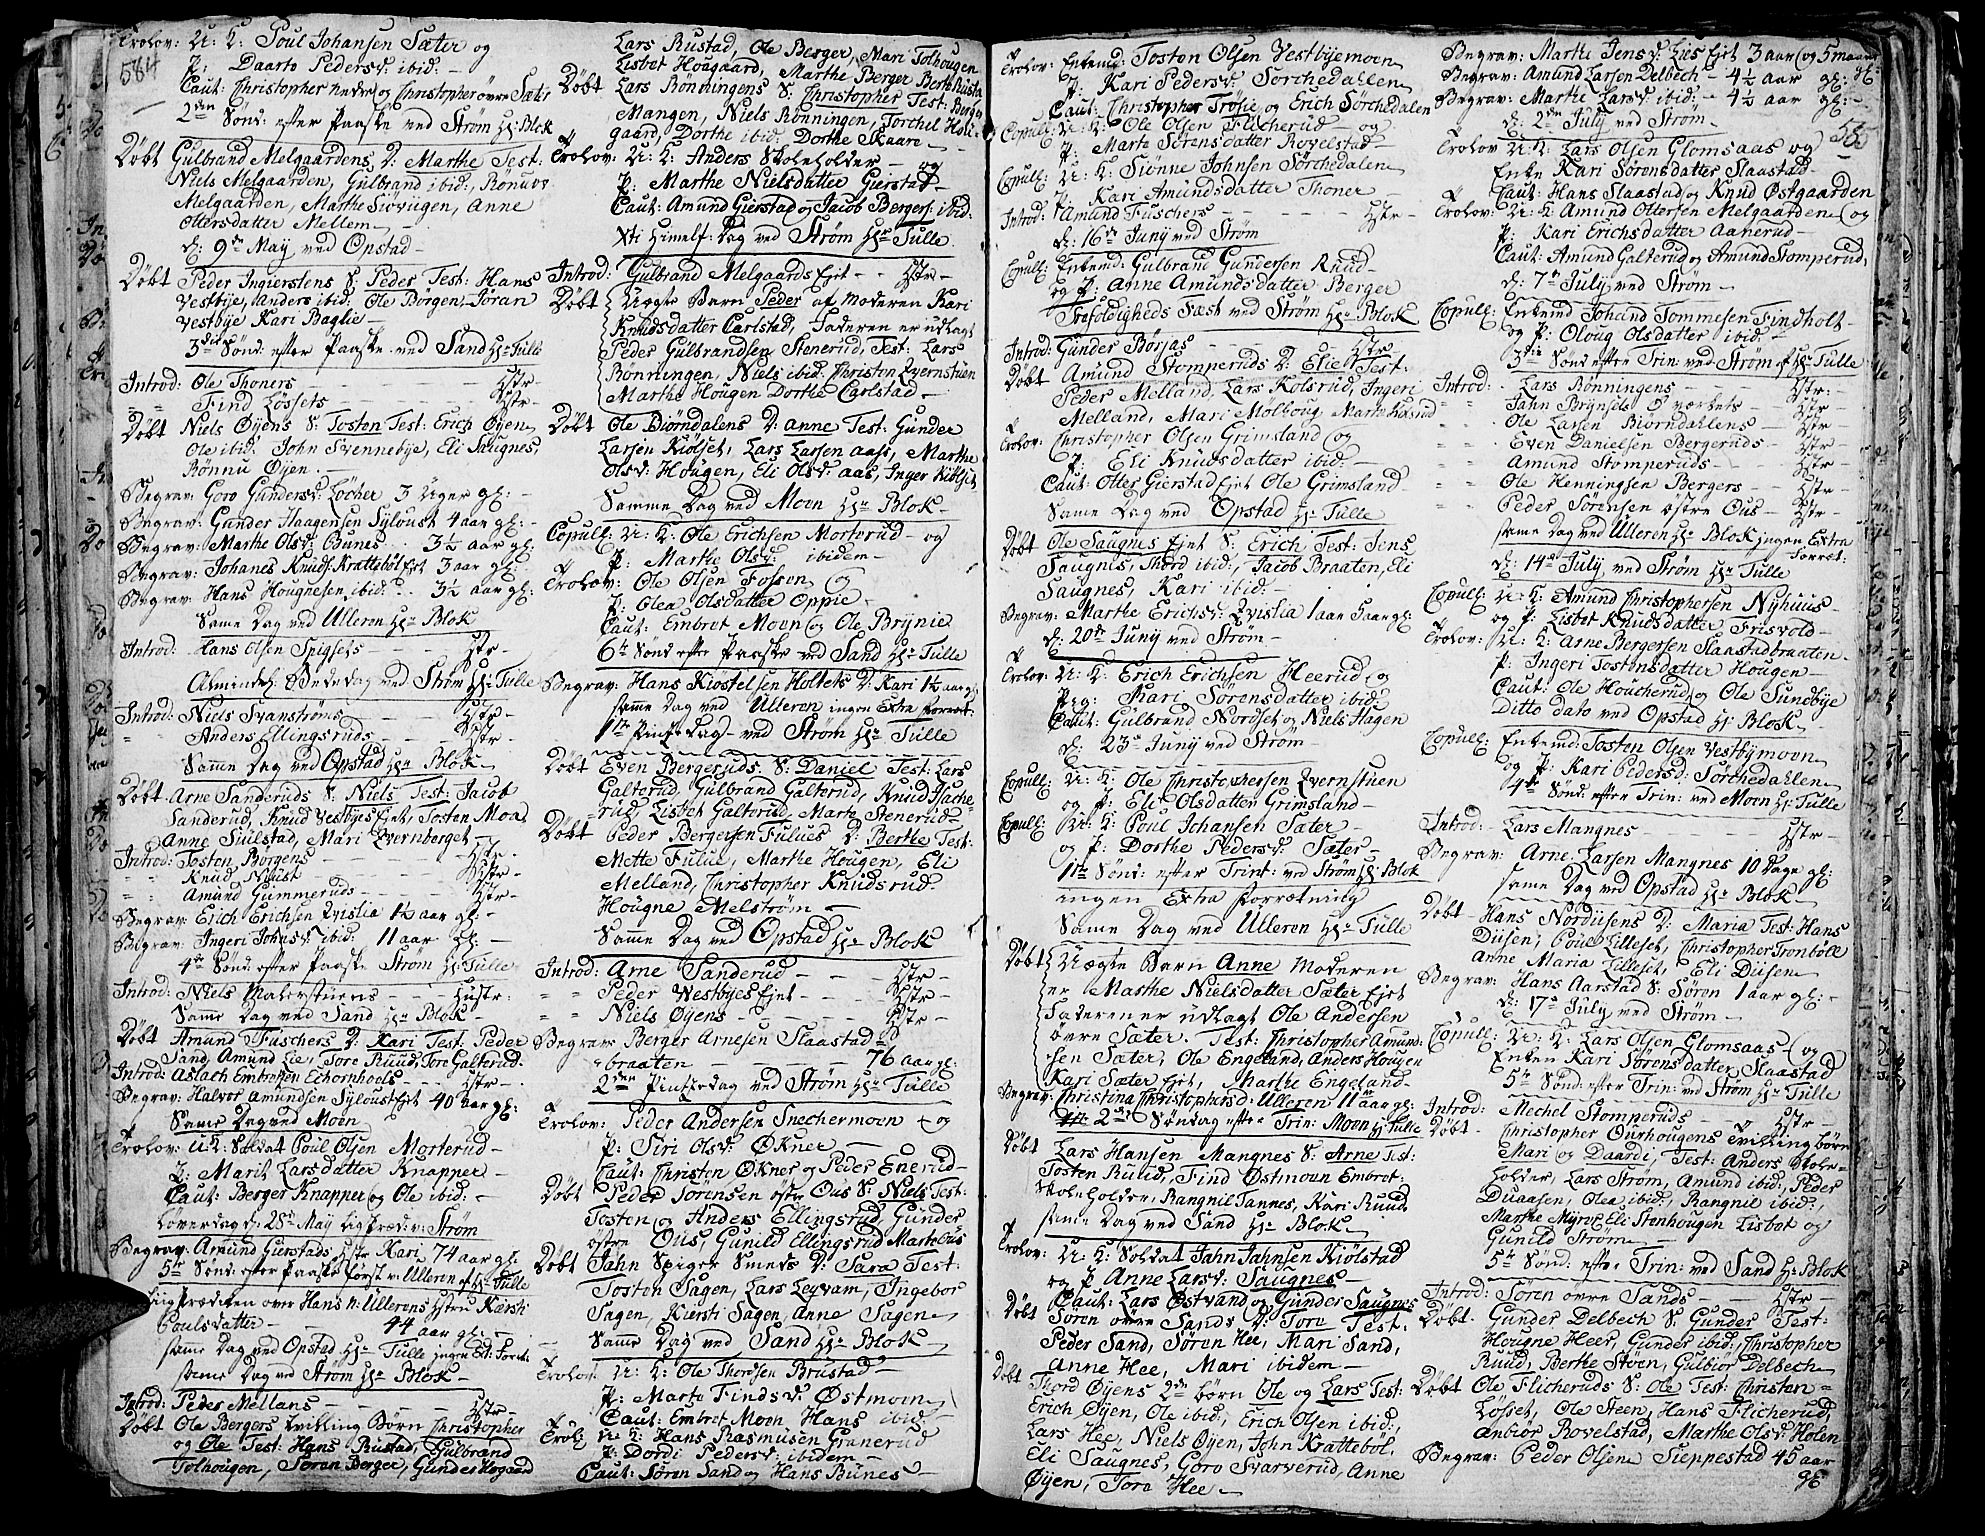 584
Trolov: U: K: Poul Johansen Sæter og
P: Daarto Pedersd: ibid: -
Caut: Christopher nedre og Christopher øvre Sæter
2den Sönd: efter Paaske ved Strøm Hr: Blok
Döbt Gulbrand Melgaardens D: Marthe Test:
Niels Melgaarden, Gulbrand ibid:, Rønnue
Melgaarden, Marthe Siviigen, Anne
Ottersdatter Mellem -
d: 9de May ved Opstad -
Döbt Peder Ingierstens S: Peder Test: Hans
Vestbye, Anders ibid: Ole Borgen, Joran
Vestbye Kari Baglie -
3die Sönd: efter Paaske ved Sand Hr: Tulle
Introd: Ole Thoners - - - Hstr -
" " Find Løssets - - - Hstr -
Döbt Niels Øyens S: Toston Test: Erich Øyen
Ole ibid: John Svennebye, Eli Saugnes,
Rønnu Øyen. -
Begrav: Goro Gundersd: Löcher 3 Uger gl: -
Begrav: Gunder Haagensen Syloust 4 aar gl: -
Begrav: Marthe Olsd: Bunes - 3½ aar gl: -
Begrav: Johanes Knuds: Krattebøl Ejet 3 aar gl: -
Begrav: Hans Hougnesen ibid: - 3½ aar gl: -
Same Dag ved Ulleren Hr: Blok
Introd: Hans Olsen Spigsets - - - Hstr -
Almindel: Bededag ved Strøm Hr: Tulle
Introd: Niels Svanstrøms - - Hstr -
" Anders Ellingsruds - - Hstr -
Samme Dag ved Opstad Hr: Blok -
Döbt Arne Sanderuds S: Niels Test: Jacob
Sanderud, Knud Vestbyes Ejet, Toston Moa,
Anne Siulstad, Mari Qvernberget -
Introd: Toston Borgens - - - Hstr -
" " Knud Nuust - - - Hstr -
" " Amund Gummeruds - - Hstr -
Begrav: Erich Erichsen Qvislia 1½ aar gl: -
Begrav: Ingeri Johnsd: ibid: 11 aar gl: -
4de Sönd: efter Paaske Strøm Hr: Tulle
Introd: Niels Malerstuens - - - Hustr:
Same Dag ved Sand Hr: Blok -
Döbt Amund Fuschers D: Kari Test: Peder
Sand, Amund Lie, Tore Ruud, Tore Galterud -
Introd: Aslach Embretsen Echornhools - - - Hstr -
Begrav: Halvor Amundsen Syloust Ejet 40 aar gl:
Same Dag ved Moen
Trolov: U: K: Soldat Poul Olsen Morterud -
P: Marit Larsdatter Knapper -
Caut: Berger Knapper og Ole ibid: -
Löverdag d: 28de May Ligpræd: v: Strøm
Begrav: Amund Gierstads Hstr Kari 74 aar gl:
5te Sönd: efter Paaske först v: Ulleren af Hr: Tulle
Ligprædiken over Hans n: Ullerens Hstru Kersti
Poulsdatter - - 44 aar gl: -
same Dag ved Opstad Hr: Tulle ingen Ext: Forret:
same Dag ved Strøm Hr: Blok -
Introd: Peder Mellans - - - Hstr -
Döbt Ole Bergers tvilling Börn Christopher
og Ole Test: Hans Rustad, Gulbrand
Tolhougen, Søren Berger, Gunder Hougaard
Lars Rustad, Ole Berger, Mari Tolhougen
Lisbet Hougaard, Marthe Berger Berthe Rustad
Döbt Lars Rönningens S: Christopher Test: Børge
Mangen, Niels Rönningen, Torchel Holi-
gaard, Dorthe ibid: Dorthe Skaare -
Trolov: U: K: Anders Skoleholder - og
P: Marthe Nielsdatter Gierstad -
Caut: Amund Gierstad og Jacob Bergers: ibid:
Xti Himelf: Dag ved Strøm Hr: Tulle
Introd: Gulbrand Melgaards Ejet - - Hstr -
Döbt Uægte Barn Peder af Moderen Kari
Knudsdatter Carlstad, Faderen er udlagt
Peder Gulbrandsen Stenerud, Test: Lars
Rönningen, Niels ibid: Christen Qvernstuen
Marthe Hougen Dorthe Carlstad -
Döbt Ole Biörndalens D: Anne Test: Gunder
Larsen Kiølset, Lars Larsen aass, Marthe
Olsd: Hougen, Eli Olsd: aas, Inger Kiølset
Samme Dag ved Moen Hr: Blok -
Copull: U: K: Ole Erichsen Morterud - og
P: Marthe Olsd: ibidem -
Trolov: Ole Olsen Fossen og
P: Olea Olsdatter Oppie -
Caut: Embret Moen og Ole Brynie
6te Sönd: efter Paaske ved Sand Hr: Tulle
Begrav: Hans Kiöstelsen Holtets D: Kari 1¼ aar gl:
same Dag ved Ulleren ingen Extra Forret:
1ste Pintse Dag - ved Strøm Hr: Tulle
Döbt Even Bergeruds S: Daniel Test: Lars
Galterud, Gulbrand Galterud, Knud Flache-
rud, Lisbet Galterud, Marthe Stenerud -
Döbt Peder Bergersen Fulues D: Berthe Test:
Mette Fulue, Marthe Hougen, Eli
Melland, Christopher Knudsrud
Hougne Melstrøm -
Samme Dag ved Opstad Hr: Blok
Introd: Arne Sanderud - - - Hstr -
" " Peder Westbyes Ejet - - - Hstr -
" " Niels Øyens - - - Hstr -
Begrav: Berger Arnesen Slaastad -
braaten - - - 76 aar gl:
2den Pintsedag ved Strøm Hr: Tulle
Trolov: Peder Andersen Snechermoen - og
P: Siri Olsd: Økner -
Caut: Christen Økner og Peder Enerud -
Döbt Peder Sörensen östre Ous S: Niels Test:
Toston og Anders Ellingsrud, Gunder
östre Ous, Gunild Ellingsrud Marte Ous
Döbt Jahn Spiger Smeds D: Sara Test:
Toston Sagen, Lars Leyvam, Ingebor
Sagen, Kiersti Sagen, Anne Sagen -
Samme Dag ved Sand Hr: Blok -
Trolov: U: K: Ole Thordsen Brustad -
P: Marta Findsd: Østmoen
Caut: Embret Moen, Hans ibid: -
Trol: U: K: Hans Rasmusen Granerud
P: Dordi Pedersd: ibidem -
Caut: Sören Sand og Hans Bunes -
585
Trolov: Enkemd: Toston Olsen Vestbyemoen
P: Kari Pedersd: Sorchedalen
Caut: Christopher Trøsie og Erich Sørchedalen
Copull: U: K: Ole Olsen Flicherud - og
P: Marte Sørensdatter Rovelstad -
Copull: U: K: Siönne Johnsen Sørchedalen
P: Kari Amundsdatter Thoner -
Introd: Amund Fuschers - - - Hstr -
d: 16de Juny ved Strøm
Copull: Enkemd: Gulbrand Gundersen Ruud -
og P: Anne Amundsdatter Berger
Trefoldigheds Fæst ved Strøm Hr: Blok
Introd: Gunder Børjas - - - Hstr -
Döbt Amund Stomperuds D: Elie Test:
Peder Melland, Lars Kolsrud, Ingeri
Melland, Mari Mølboug Marthe
Trolov: Christopher Olsen Grimsland og
P: Eli Knudsdatter ibid: -
Caut: Otter Gierstad Ejet Ole Grimsland -
Same Dag ved Opstad Hr: Tulle
Döbt Ole Saugnus Ejet S: Erich, Test: Jens
Saugnes, Thord ibid:, Jacob Braaten, Eli
Saugnes, Kari ibid: -
Begrav: Marthe Erichsd: Qvislia 1 aar
d: 20de Juny ved Strøm -
Trolov: U: K: Erich Erichsen Heerud og
Pig: Mari Sørensdatter ibid:
Caut: Gulbrand Nordset og Niels Hagen
d: 23de Juny ved Strøm -
Copull: U: K: Ole Christophersen Qvernstuen
og P: Eli Olsdatter Grimsland -
Copull: U: K: Poul Johansen Sæter -
og P: Dorthe Pedersd: Sæter -
1ste Sönd: efter Trint: ved Strøm Hr: Blok
ingen Extra Forretning
Same Dag ved Ulleren Hr: Tulle
Döbt Uægte Barn Anne Moderen
er Marthe Nielsdatter Sæter Ejet
Faderen er udlagt Ole Andersen
övre Sæter. Test: Christopher Amund-
sen Sæter, Ole Engeland, Anders Hougen
Kari Sæter Ejet, Marthe Engeland -
Begrav: Christina Christophersd: Ulleren 11 aar gl:
2den Söndag efter Trin: Moen Hr: Tulle
Döbt Lars Hansen Mangnes S: Arne Test:
Tosten Ruud, Find Østmoen Embret
Skoleholder, Rangnil Tannes, Kari Ruud
same Dag ved Sand Hr: Blok
Trolov: U: K: Soldat Jahn Jahnsen Kiölstad
og P: Anne Larsd: Saugnes -
Caut: Lars Østvand og Gunder Saugnes
Döbt Sören övre Sands D: Tore Test:
Peder Sand, Søren Hee, Mari Sand,
Anne Hee, Mari ibidem -
Döbt Thord Øyens 2de börn Ole og Lars Test:
Erich Øyen, Ole ibid:, Erich Olsen ibid:,
Lars Hee, Niels Øyen, John Krattebøl,
Eli Saugnes, Goro Svarverud, Anne
Øyen, Tora Hee -
Begrav: Marthe Jensd: Lies Ejet 3 aar og 5 maan:
Begrav: Amund Larsen Delbech - 4½ aar gl:
Begrav: Marthe Larsd: ibid: - 4½ aar gl: -
d: 2den July ved Strøm -
Trolov U: K: Lars Olsen Glomsaas og
Enke Kari Sørensdatter Slaastad -
Caut: Hans Slaastad og Knud Østgaarden
Trolov: U: K: Amund Ottersen Melgaarden og
P: Kari Erichsdatter Aanerud -
Caut: Amund Galterud og Amund Stomperud,
d: 7de July ved Strøm -
Copull: Enkemd Johand Tommesen Findholt -
og P: Oloug Olsdatter ibid: -
3die Sönd: efter Trin: ved Strøm af Hr: Tulle
Introd: Lars Rönningens - - Hstr -
Jahn Brynsets værkets - Hstr -
Ole Larsen Biörndahlens - Hstr -
Even Danielsen Bergeruds - Hstr -
Amund Stomperuds - - Hstr -
Ole Henningsen Bergers - Hstr -
Peder Sörensen östre Ous - Hstr -
same Dag ved Ulleren Hr: Blok ingen Extra
Forret:
d: 14de July ved Strøm Hr: Tulle
Copull: U: K: Amund Christophersen Nyhuus -
og P: Lisbet Knudsdatter Frisvold -
Trolov: U: K: Arne Bergersen Slaastadbraaten -
P: Ingeri Tostonsdatter Hougen -
Caut: Ole Houcherud og Ole Sundbye
Ditto dato ved Opstad Hr: Blok -
Copull: Enkemd: Toston Olsen Vestbymoen
og P: Kari Pedersd: Sorchedahlen
4de Sönd: efter Trin: ved Moen Hr: Tulle
Introd: Lars Mangnes - - - Hstr -
Begrav: Arne Larsen Mangnes 10 Dage gl:
same Dag ved Opstad Hr: Blok -
Döbt Hans Nordiisens D: Maria Test: Hans
Diisen, Poul Lilleset, Christopher Trønbölle
Anne Maria Lilleset, Eli Diisen -
Begrav: Hans Aarstad S: Søren 1 aar gl: -
d: 17de July ved Strøm -
Copull: U: K: Lars Olsen Glomsaas - og
Enken Kari Sørensdatter Slaastad
5te Sönd: efter Trin: ved Strøm Hr: Tulle
Introd: Mechel Stomperuds - - Hstr -
Döbt Christopher Ourhougens tvilling börn
Mari og Daardi, Test: Anders Skole-
holder, Lars Strøm, Amund ibid:, Peder
Duaasen, Olea ibid:, Rangnie ibid:,
Marthe Myrer Eli Stenhougen Lisbet og
Gunild Strøm -
5te Sönd: efter Trin: ved Sand Hr: Blok
Introd: Søren övre Sands - - Hstr -
Döbt Gunder Delbech S: Gunder Test:
Hougne Heer, Gunder ibid:, Christopher
Ruud, Berthe Støen, Gulbiør Delbech
Döbt Ole Flicheruds S: Ole Test: Christen
Løsset, Ole Steen, Hans Flicherud,
Anbior Rovelstad, Marthe Olsd: Holen
Begrav: Peder Olsen Sieppestad 45 aar
gl: